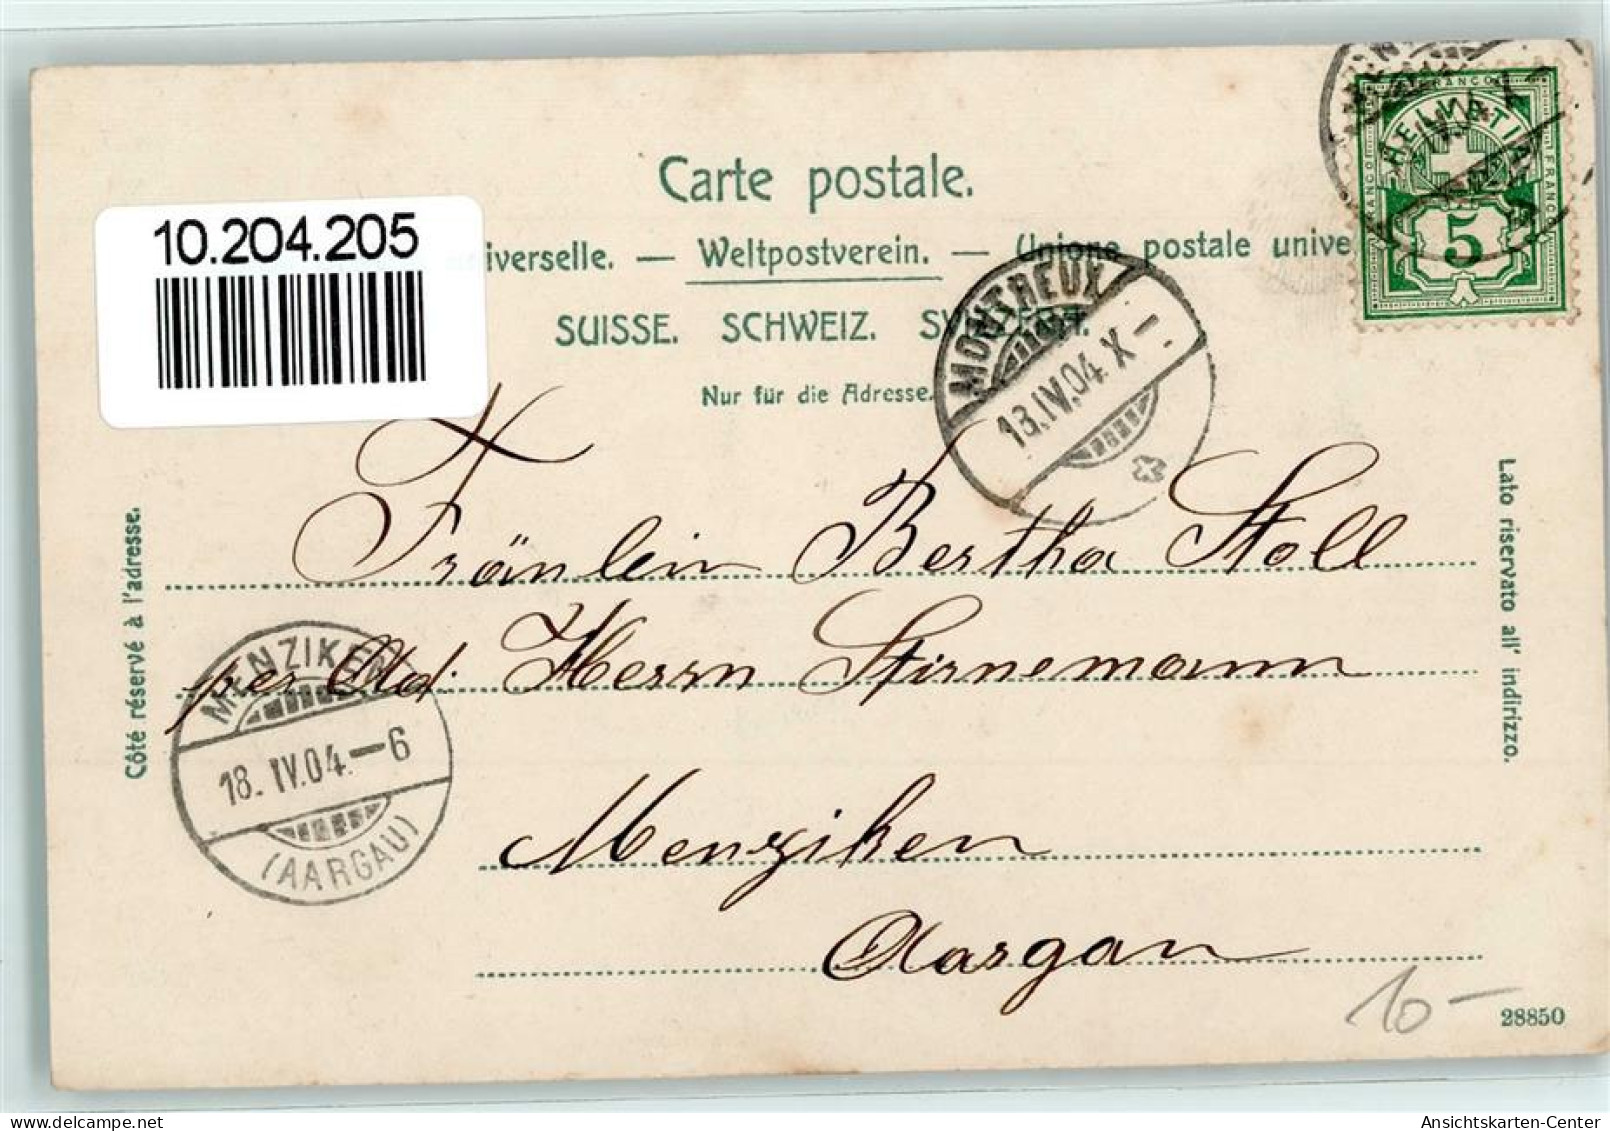 Carte postale.
10.204.205
iverselle. — Weltpostverein. — Unione postale unive
SUISSE. SCHWEIZ. SVIZZERA.
Nur für die Adresse.
MONTREUX
13.IV.04. X–
FRANCO
HELVETIA
FRANCO
5
Côté réservé à l'adresse.
Lato riservato all' indirizzo.
Fräulein Bertha Stoll
per Ad. Herrn Stirnemann
Menziken
Aargau
MENZIKEN
18. IV.04.–6
(AARGAU)
10–
28850
Ansichtskarten-Center